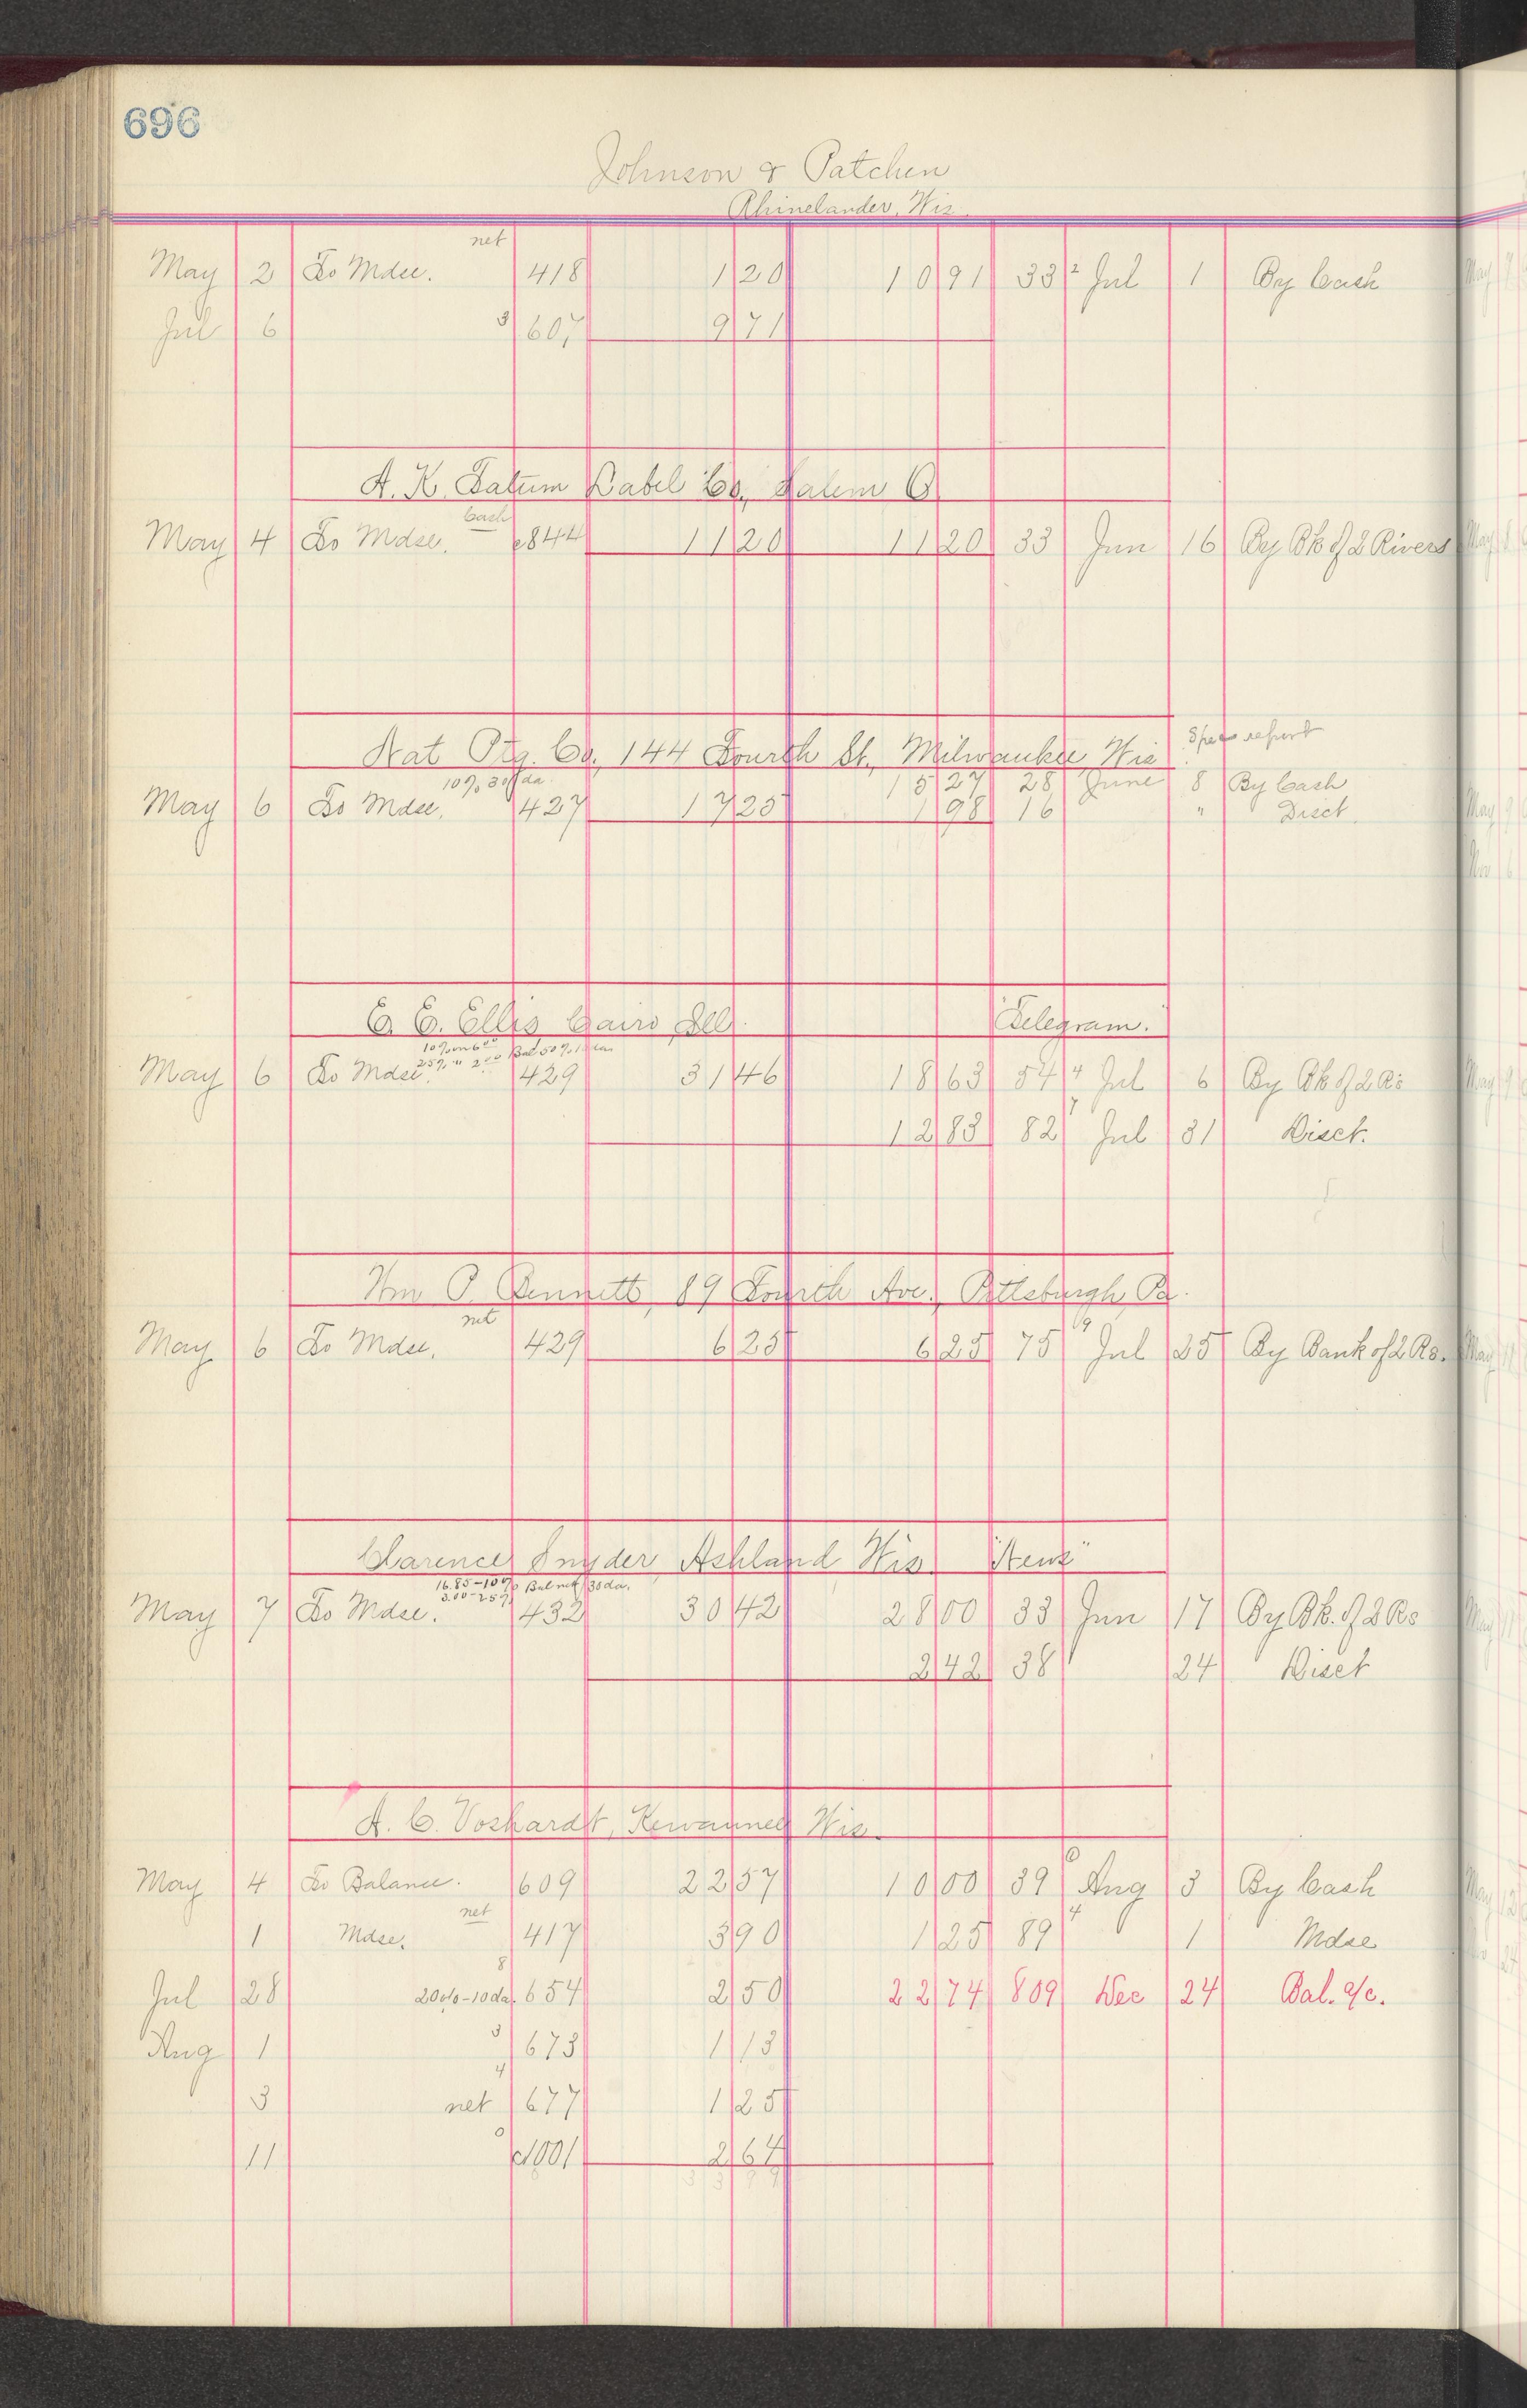 696
Johnson & Patchen
Rhinelander, Wis.
net
May 2 To Mdse. 418 1 20 10 91 33 2 Jul 1 By Cash
Jul 6 3 607 9 71
A. K. Tatum Label Co., Salem O
Cash
May 4 To Mdse. c844 11 20 11 20 33 Jun 16 By Bk of 2 Rivers
Nat Ptg. Co., 144 Fourth St., Milwaukee Wis Spec report
10% 30 da 15 27 28 June 8 By Cash
May 6 To Mdse. 427 17 25 1 98 16 " Disct.
E. E. Ellis Cairo Ill. "Telegram."
10% on 6 00
25% " 2 00 Bal 50%
May 6 To Mdse. 429 31 46 18 63 54 4 Jul 6 By Bk of 2 Rs
12 83 82 7 Jul 31 Disct.
Wm P. Bennett, 89 Fourth Ave., Pittsburgh, Pa.
net
May 6 To Mdse. 429 6 25 6 25 75 19 Jul 25 By Bank of 2 Rs.
Clarence Snyder, Ashland Wis. "News"
16.85-10% Bal net 30 da.
3.00-25%
May 7 To Mdse. 432 30 42 28 00 33 Jun 17 By Bk. of 2 Rs
2 42 38 24 Disct
A. C. Voshardt, Kewaunee Wis.
May 4 To Balance. 609 22 57 10 00 39 6 Aug 3 By Cash
net
1 Mdse. 417 3 90 1 25 89 4 1 Mdse
Jul 28 20%-10 da. 8 654 2 50 22 74 809 Dec 24 Bal. a/c.
Aug 1 3 673 1 13
3 net 4 677 1 25
11 0 c1001 2 64
33 99